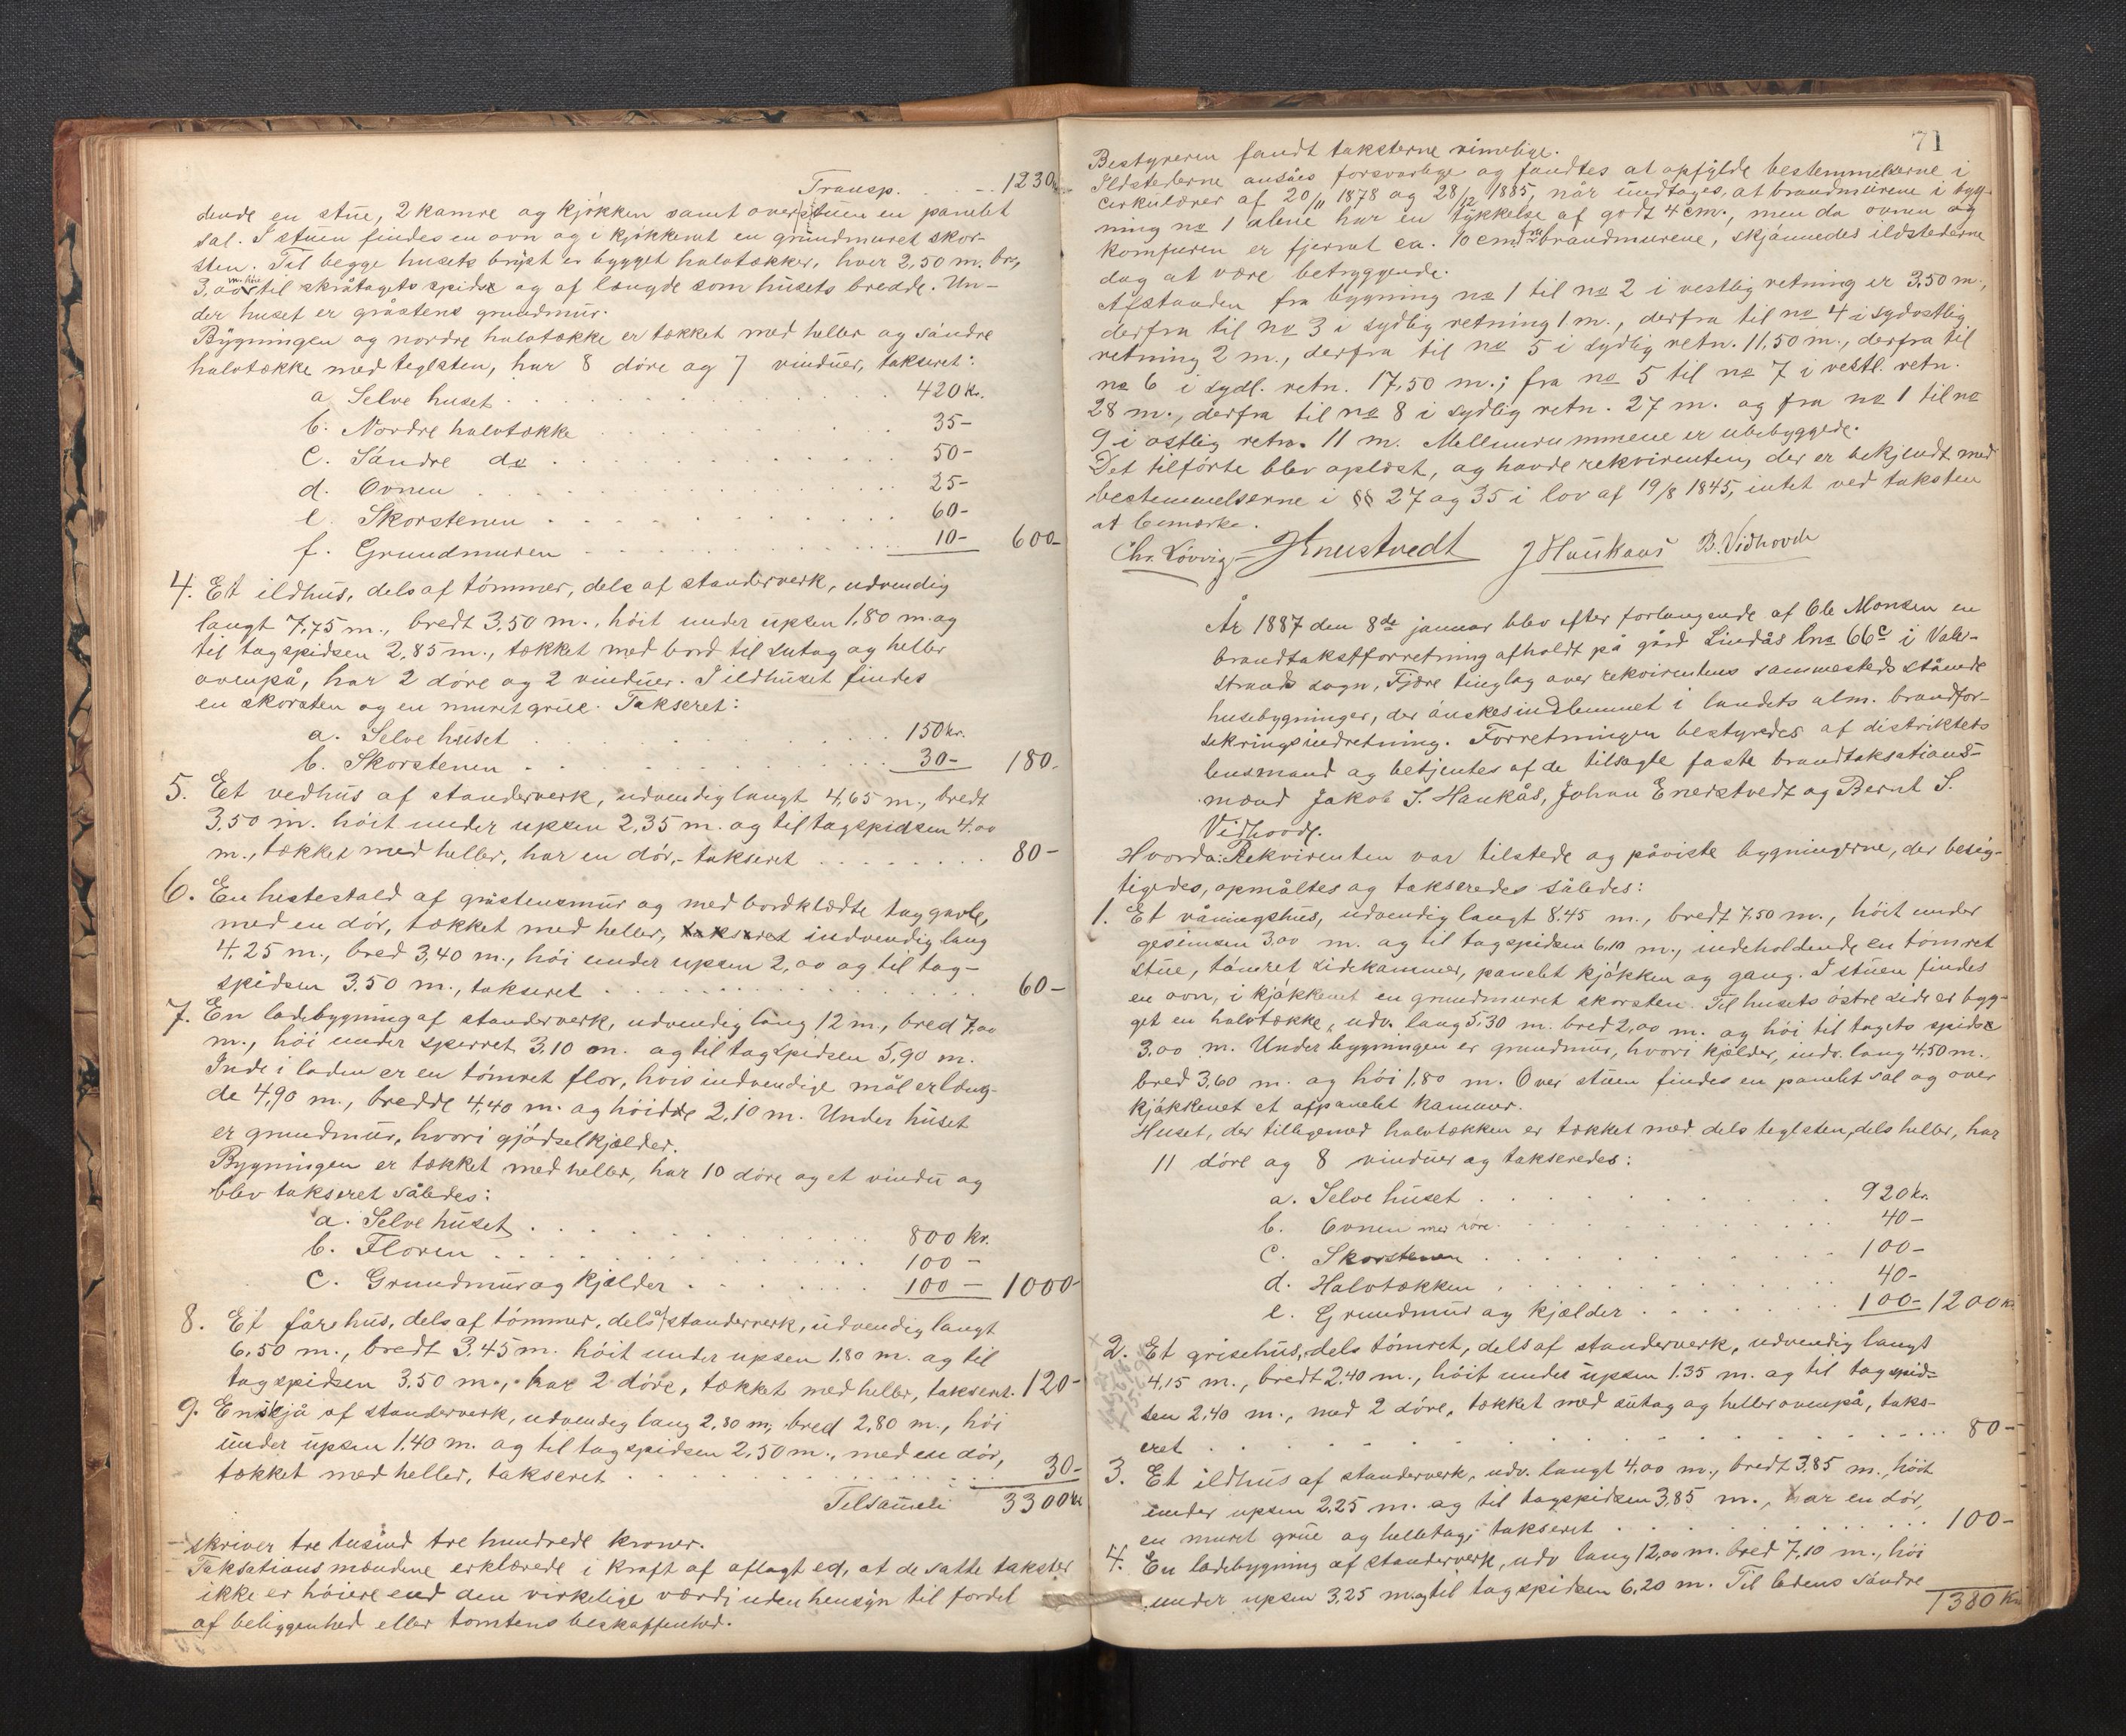 Transp. . . . . 1230 kr
dende en stue, 2 kamre og kjøkken samt over stuen en panelet
sal. I stuen findes en ovn og i kjøkkenet en grundmuret skor-
sten. Til begge husets bryst er bygget halvtækker, hver 2,50 m. br.,
3,00 m. høie til skråtagets spidse og af længde som husets bredde. Un-
der huset er gråstens grundmur.
Bygningen og nordre halvtække er tækket med heller og søndre
halvtække med teglsten, har 8 døre og 7 vinduer, takseret:
a. Selve huset . . . . 420 kr.
b. Nordre halvtække . . . . 35-
c. Søndre do . . . . 50-
d. Ovnen . . . . 25-
e. Skorstenen . . . . 60-
f. Grundmuren . . . . 10- 600-
4. Et ildhus, dels af tømmer, dels af standerverk, udvendig
langt 7,75 m., bredt 3,50 m., høit under upsen 1,80 m. og
til tagspidsen 2,85 m., tækket med bord til sutag og heller
ovenpå, har 2 døre og 2 vinduer. I ildhuset findes
en skorsten og en muret grue. Takseret:
a. Selve huset . . . . 150 kr.
b. Skorstenen . . . . 30- 180.
5. Et vedhus af standerverk, udvendig langt 4,65 m., bredt
3,50 m. høit under upsen 2,35 m. og til tagspidsen 4,00
m., tækket med heller, har en dør, - takseret . . . . 80-
6. En hestestald af gråstensmur og med bordklædte taggavle,
med en dør, tækket med heller, takseret indvendig lang
4,25 m., bred 3,40 m., høi under upsen 2,00 og til tag-
spidsen 3,50 m., takseret . . . . 60-
7. En ladebygning af standerverk, udvendig lang 12 m., bred 7,00
m., høi under sperret 3,10 m. og til tagspidsen 5,90 m.
Inde i laden er en tømret flor, hvis indvendige mål er læng-
de 4,90 m., bredde 4,40 m. og høidde 2,10 m. Under huset
er grundmur, hvori gjødselkjælder.
Bygningen er tækket med heller, har 10 døre og et vindu og
blev takseret således:
a. Selve huset . . . . 800 kr.
b. Floren . . . . 100 -
c. Grundmur og kjælder . . . . 100 - 1000-
8. Et fårehus, dels af tømmer, dels af standerverk, udvendig langt
6,50 m., bredt 3,45 m. høit under upsen 1,80 m. og til
tagspidsen 3,50 m., har 2 døre, tækket med heller, takseret. 120-
9. En skjå af standerverk, udvendig lang 2,80 m, bred 2,80 m., høi
under upsen 1,40 m. og til tagspidsen 2,50 m., med en dør,
tækket med heller, takseret . . . . 30-
Tilsammen 3300 kr
skriver tre tusind tre hundrede kroner.
Taksationsmændene erklærede i kraft af aflagt ed, at de satte takster
ikke er høiere end den virkelige værdi uden hensyn til fordel
af beliggenhed eller tomtens beskaffenhed.
71
Bestyreren fandt taksterne rimelige.
Ildstederne ansåes forsvarlige og fandtes at opfylde bestemmelserne i
cirkulærer af 20/11 1878 og 28/12 1885, når undtages, at brandmurene i byg-
ning no 1 alene har en tykkelse af godt 4 cm., men da ovnen og
komfuren er fjernet ca. 10 cm. fra brandmurene, skjønnedes ildstederne
dog at være betryggende.
Afstanden fra bygning no 1 til no 2 i vestlig retning er 3,50 m.,
derfra til no 3 i sydlig retning 1 m., derfra til no 4 i sydostlig
retning 2 m., derfra til no 5 i sydlig retn. 11,50 m., derfra til
no 6 i sydl. retn. 17,50 m.; fra no 5 til no 7 i vestl. retn.
28 m., derfra til no 8 i sydlig retn. 27 m. og fra no 1 til no
9 i østlig retn. 11 m. Mellemrummene er ubebyggede.
Det tilførte blev oplæst, og havde rekvirenten, der er bekjendt med
bestemmelserne i §§ 27 og 35 i lov af 19/8 1845, intet ved taksten
at bemærke.
Chr. Løvvig JEnerstvedt JHaukaas B. Vidhovde
År 1887 den 8de januar blev efter forlangende af Ole Monsen en
brandtakstforretning afholdt på gård Lindås lno 66c i Vale-
strand sogn, Fjære tinglag over rekvirentens sammesteds stående
husebygninger, der ønskes indlemmet i landets alm. brandfor-
sikringsindretning. Forretningen bestyredes af distriktets
lensmand og betjentes af de tilsagte faste brandtaksations-
mænd Jakob J. Haukås, Johan Enerstvedt og Bernt S.
Vidhovde.
Hvorda: Rekvirenten var tilstede og påviste bygningerne, der besig-
tigedes, opmåltes og takseredes således:
1. Et våningshus, udvendig langt 8,45 m., bredt 7,50 m., høit under
gesimsen 3,00 m. og til tagspidsen 6,10 m., indeholdende en tømret
stue, tømret sidekammer, panelet kjøkken og gang. I stuen findes
en ovn, i kjøkkenet en grundmuret skorsten. Til husets østre side er byg-
get en halvtække, udv. lang 5,30 m. bred 2,00 m. og høi til tagets spidse
3,00 m. Under bygningen er grundmur, hvori kjælder, indv. lang 4,50 m.,
bred 3,60 m. og høi 1,80 m. Over stuen findes en panelet sal og over
kjøkkenet et afpanelet kammer.
Huset, der tilligemed halvtækken er tækket med dels teglsten, dels heller, har
11 døre og 8 vinduer og takseredes:
a. Selve huset . . . . 920 kr.
b. Ovnen med røre . . . . 40-
c. Skorstenen . . . . 100-
d. Halvtækken . . . . 40-
e. Grundmur og kjælder . . . . 100- 1200 kr
2. Et grisehus, dels tømret, dels af standerverk, udvendig langt
4,15 m., bredt 2,40 m., høit under upsen 1,35 m. og til tagspid-
sen 2,40 m., med 2 døre, tækket med sutag og heller ovenpå, taks-
eret . . . . 80-
3. Et ildhus af standerverk, udv. langt 4,00 m., bredt 3,85 m., høit
under upsen 2,25 m. og til tagspidsen 3,85 m., har en dør,
en muret grue og helletag; takseret . . . . 100-
4. En ladebygning af standerverk, udv lang 12,00 m. bred 7,10 m., høi
under upsen 3,25 m. og til tagspidsen 6,20 m. Til ladens søndre
1380 kr.